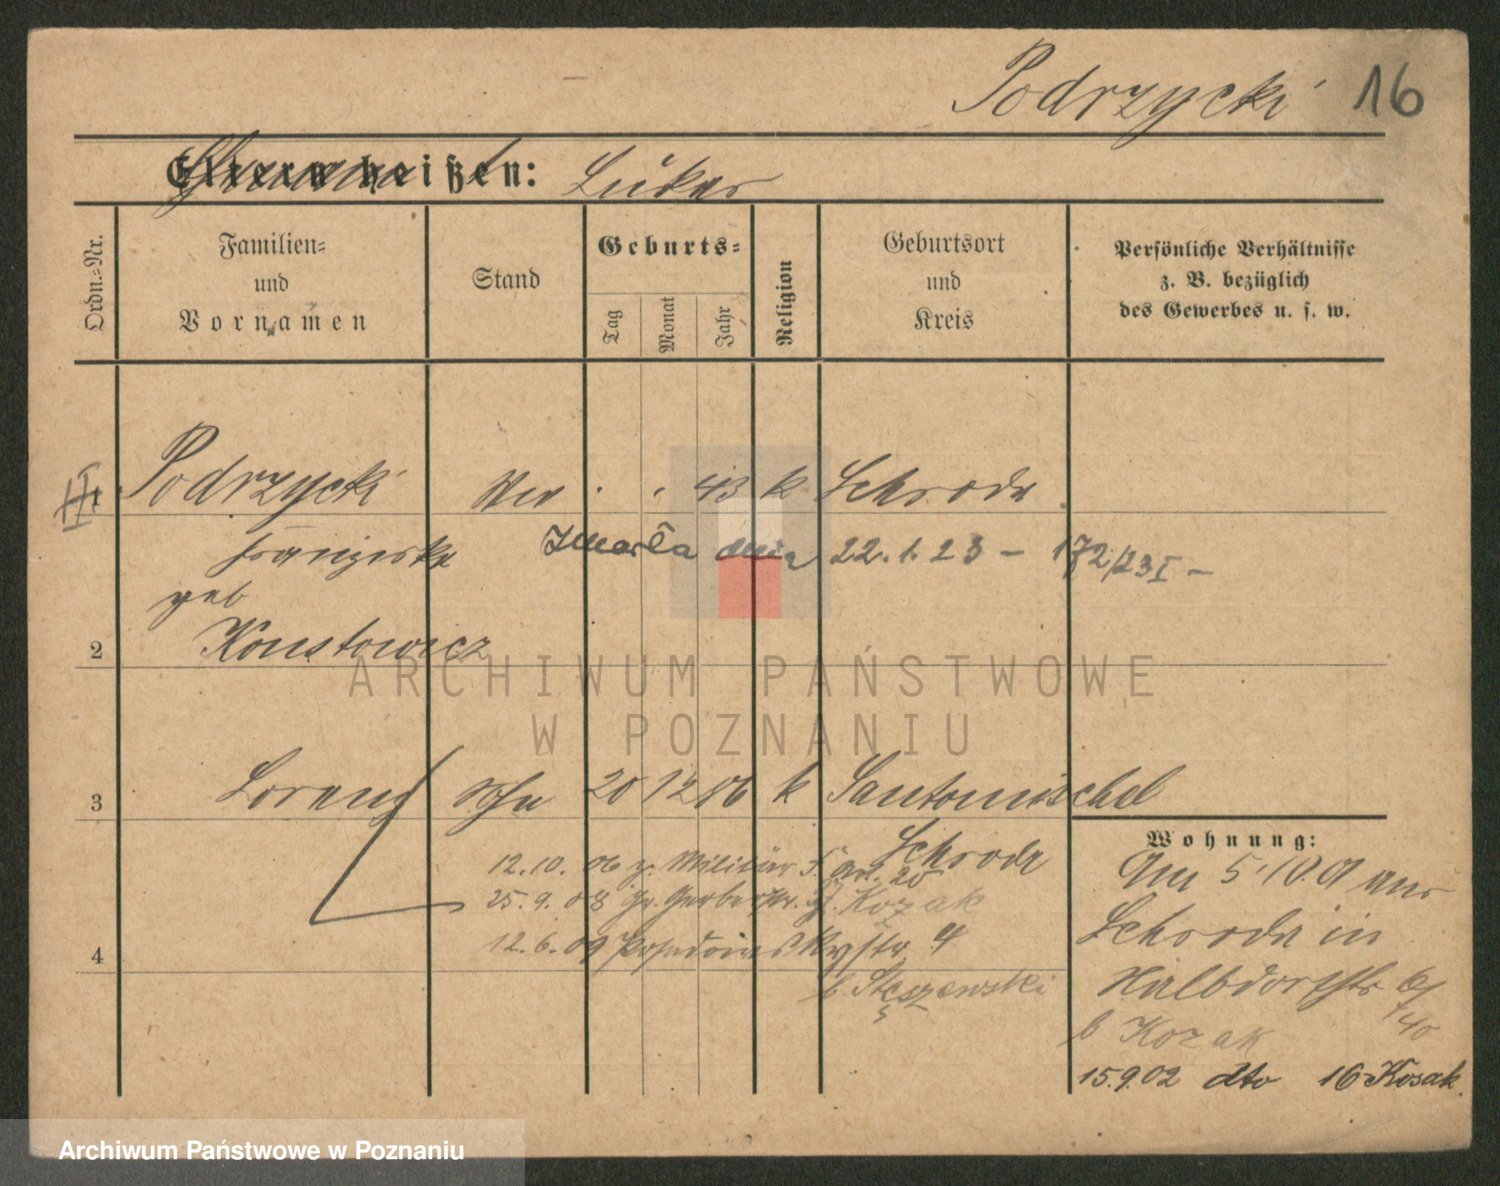 Podrzycki 16
Eltern heißen: Lukas
Ordn.-Nr.
Familien-
und
Vornamen
Stand
Geburts-
Tag
Monat
Jahr
Religion
Geburtsort
und
Kreis
Persönliche Verhältnisse
z. B. bezüglich
des Gewerbes u. s. w.
Podrzycki 43 k Schroda
Franziska Zmarła dnia 22.1.23 – 172/23 I –
geb
2 Konstowicz
3 Lorenz Sohn 20 12 86 k Santomischel
Schroda
12.10. 06 z. Militär
25.9.08 Gr. Gerberstr. Kozak
4 12.6.09
b. Stęszewski
Wohnung:
Am 5/10.01 aus
Schroda in
Halbdorfstr
b Kozak
15.9.02 dto 16 Kosak.
ARCHIWUM PAŃSTWOWE
W POZNANIU
Archiwum Państwowe w Poznaniu